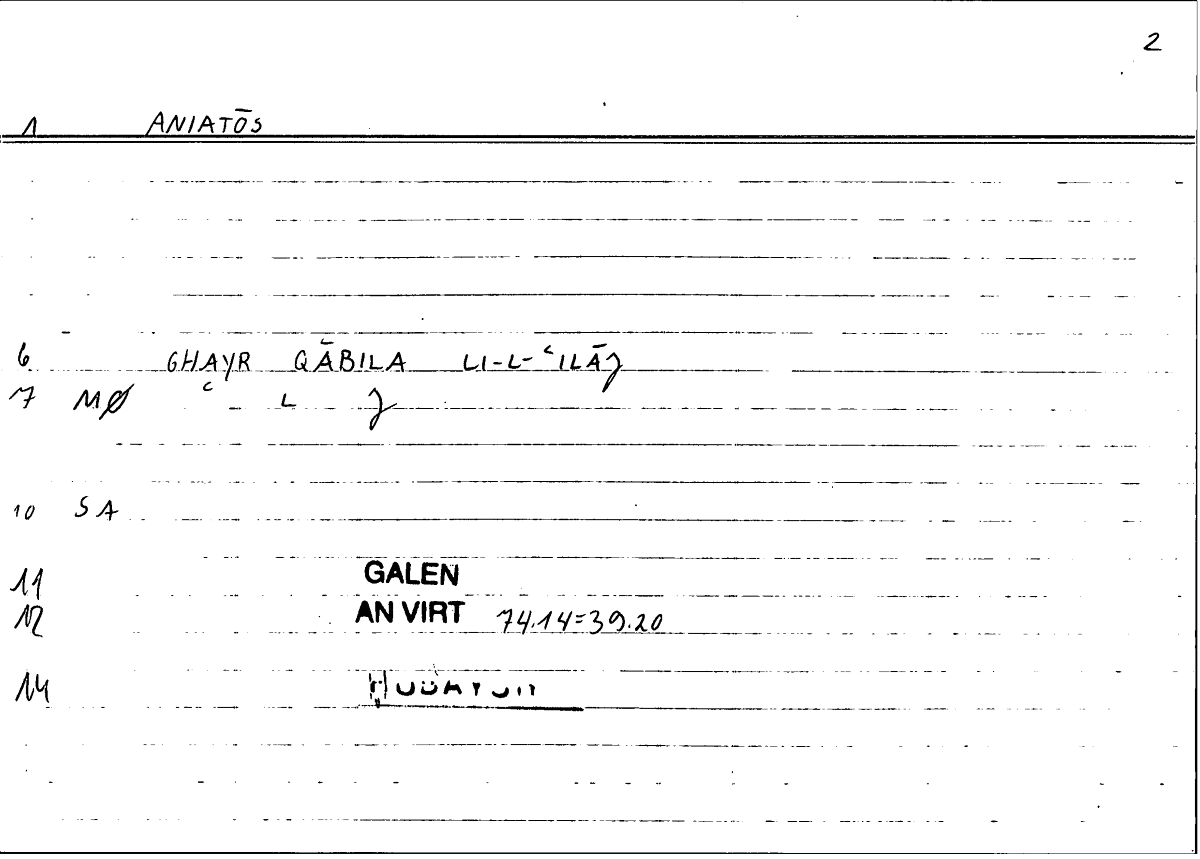 2
1 ANIATŌS
6 GHAYR QĀBILA LI-L-ʿILĀJ
7 MØ ʿ L J
10 SA
11 GALEN
12 AN VIRT 74.14=39.20
14